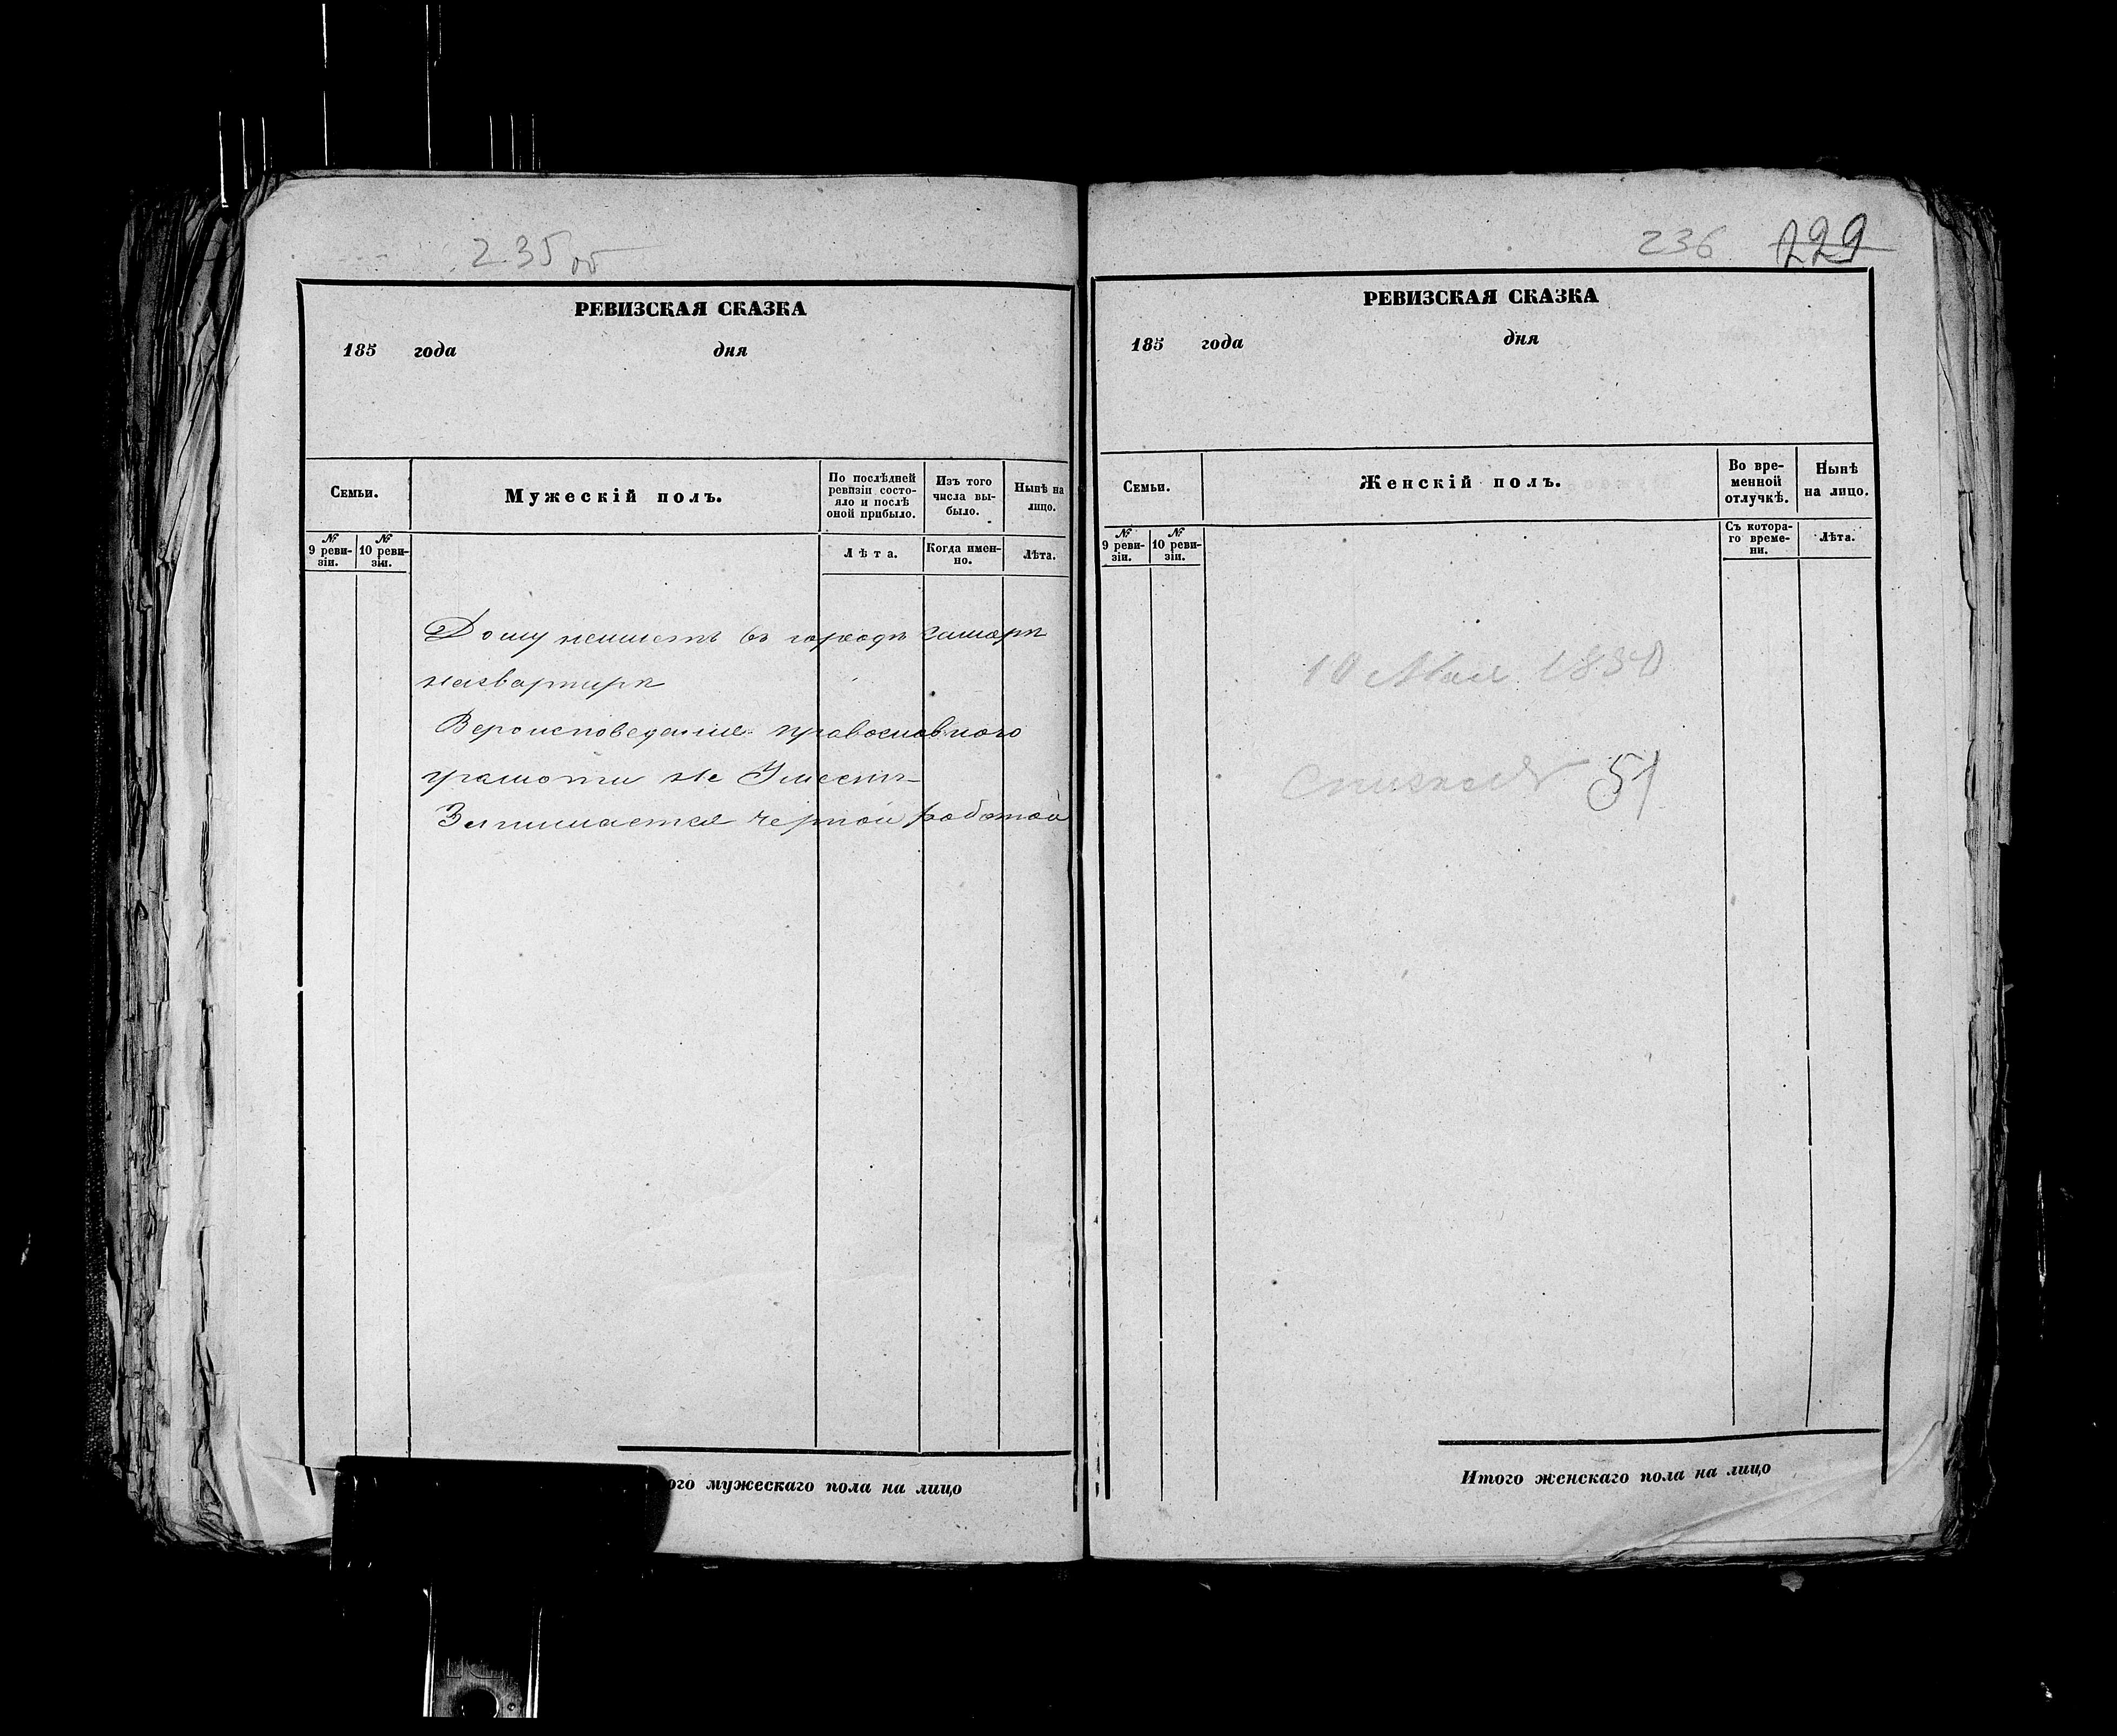 235 об
РЕВИЗСКАЯ СКАЗКА
185 года дня
Семьи.
Мужескій полъ.
По послѣдней ревизіи состо-
яло и послѣ
оной прибыло.
Изъ того
числа вы-
было.
Нынѣ на
лицо.
№
9 реви-
зіи.
№
10 реви-
зіи.
Лѣта.
Когда имен-
но.
Лѣта.
Дому неимеетъ въ городѣ Самарѣ
наквартирѣ
Вероисповедание православного
грамоти не Умеетъ
Занимается черной работой
ого мужескаго пола на лицо
236 229
РЕВИЗСКАЯ СКАЗКА
185 года дня
Семьи.
Женскій полъ.
Во вре-
менной
отлучкѣ.
Нынѣ
на лицо.
№
9 реви-
зіи.
№
10 реви-
зіи.
Съ котора-
го време-
ни.
Лѣта.
10 Мая
51
Итого женскаго пола на лицо